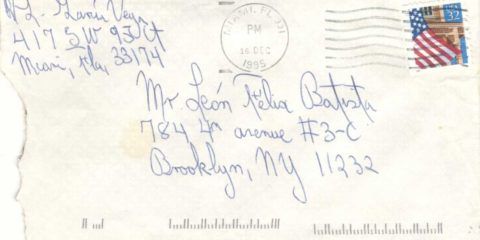 L. García Vega
417 SW 93 Ct
Miami, Fla, 33174
MIAMI, FL 331
PM
16 DEC
1995
32
Mr León Félix Batista
784 4th avenue #3-C
Brooklyn, NY 11232